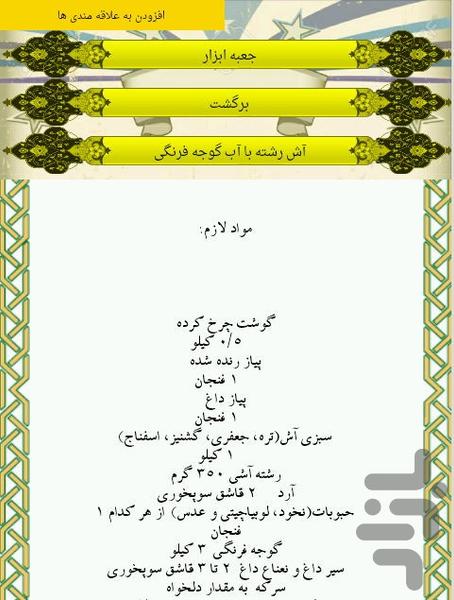 افزودن به علاقه مندی ها
جعبه ابزار
برگشت
آش رشته با آب گوجه فرنگی
مواد لازم:
گوشت چرخ کرده
۰/۵ کیلو
پیاز رنده شده
۱ فنجان
پیاز داغ
۱ فنجان
سبزی آش(تره، جعفری، گشنیز، اسفناج)
۱ کیلو
رشته آشی ۳۵۰ گرم
آرد ۲ قاشق سوپخوری
حبوبات(نخود، لوبیاچیتی و عدس) از هر کدام ۱
فنجان
گوجه فرنگی ۳ کیلو
سیر داغ و نعناع داغ ۲ تا ۳ قاشق سوپخوری
سرکه به مقدار دلخواه
بازار